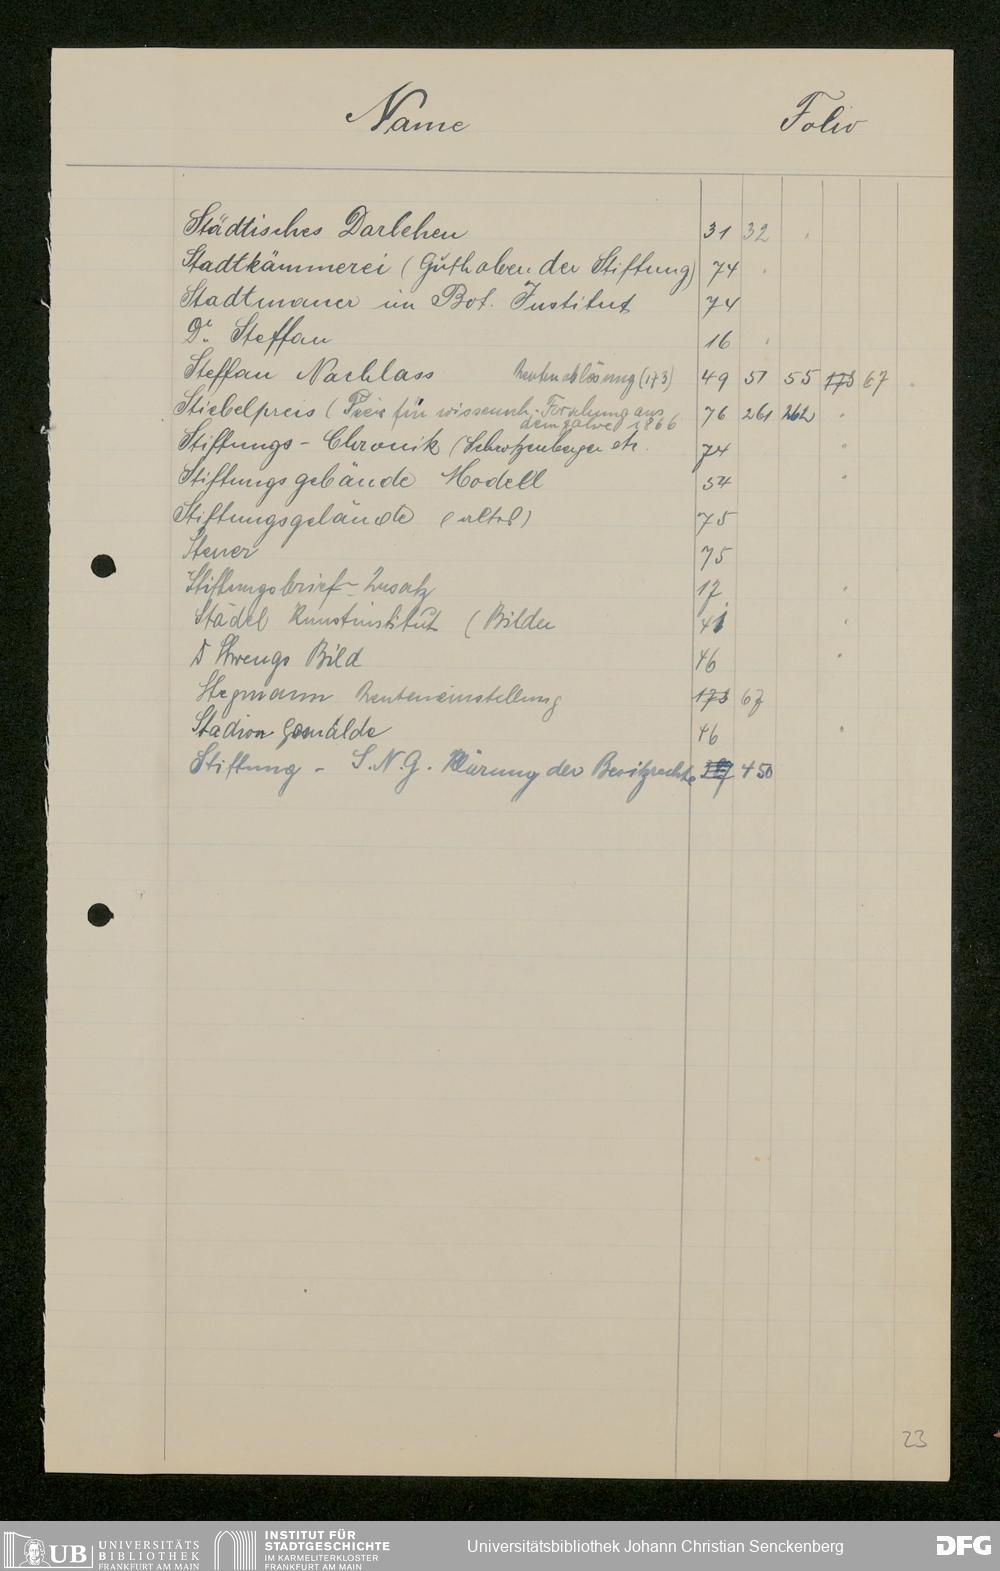 Name Folio
Städtisches Darlehen 31 32
Stadtkämmerei (Guthaben der Stiftung) 74
Stadtmauer im Bot. Institut 74
Dr. Steffan 16
Steffan Nachlass Rentenablösung (173) 49 51 55 173 67
Stiebelpreis (Preis für wissensch. Forschung aus
dem Jahre 1866 76 261 262
Stiftungs-Chronik (Schrotzenberger etc. 74
Stiftungsgebäude Modell 54
Stiftungsgelände (altes) 75
Steuer 75
Stiftungsbrief-Zusatz 17
Städel Kunstinstitut (Bilder 41
Bild 46
Stegmann Renteneinstellung 173 67
Stadion Gemälde 46
Stiftung - S.N.G. Klärung der Besitzrechte 450
23
UB UNIVERSITÄTS
BIBLIOTHEK
FRANKFURT AM MAIN
INSTITUT FÜR
STADTGESCHICHTE
IM KARMELITERKLOSTER
FRANKFURT AM MAIN
Universitätsbibliothek Johann Christian Senckenberg
DFG